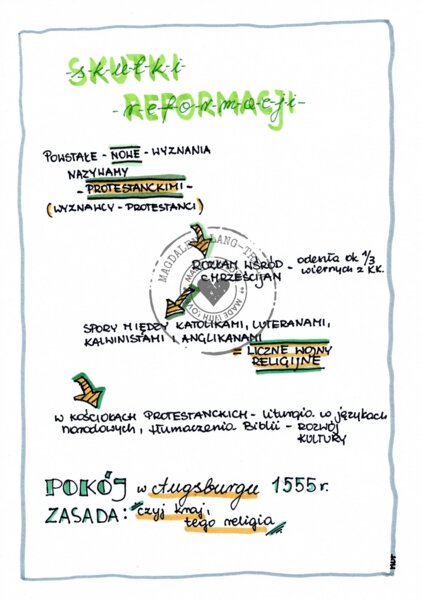 SKUTKI
REFORMACJI
POWSTAŁE - NOWE - WYZNANIA
NAZYWAMY
- PROTESTANCKIMI -
(WYZNAWCY - PROTESTANCI)
ROZŁAM WŚRÓD - odeszła ok 1/3
CHRZEŚCIJAN wiernych z K.K.
SPORY MIĘDZY KATOLIKAMI, LUTERANAMI,
KALWINISTAMI I ANGLIKANAMI
= LICZNE WOJNY
RELIGIJNE
W KOŚCIOŁACH PROTESTANCKICH - liturgia w językach
narodowych, tłumaczenia Biblii - ROZWÓJ
KULTURY
POKÓJ w Augsburgu 1555 r.
ZASADA: "czyj kraj,
tego religia"
MUT